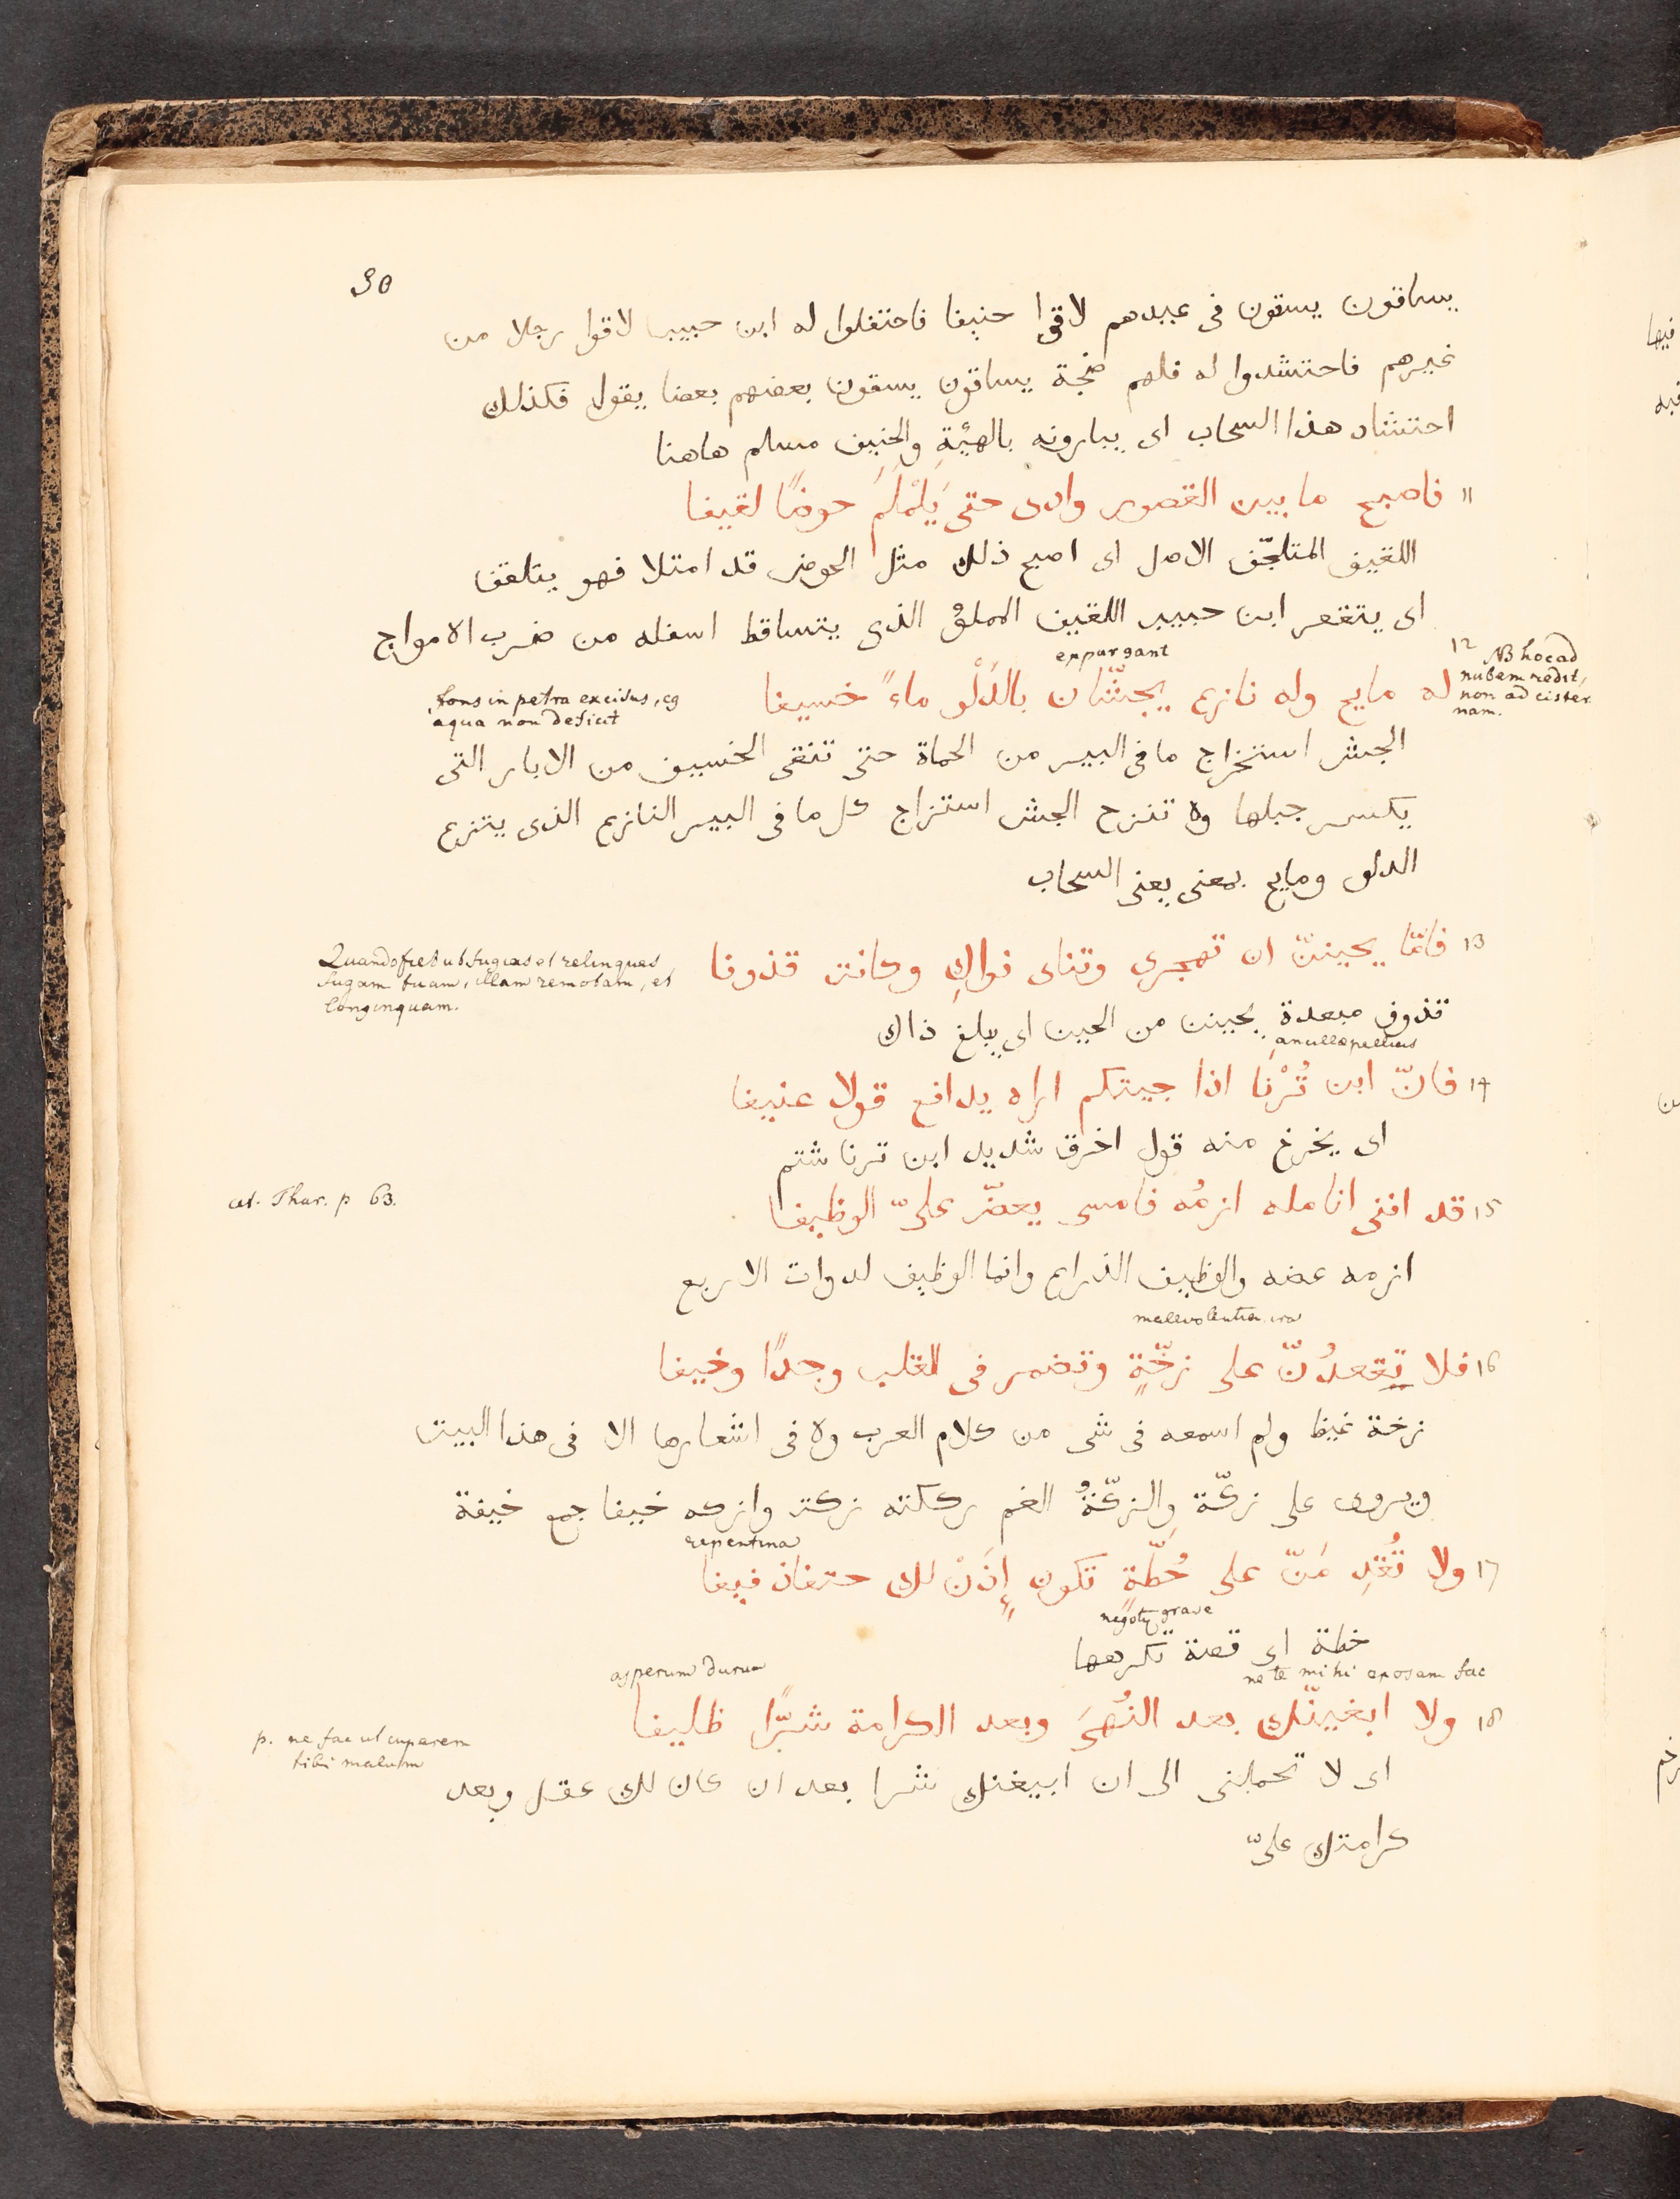 30
يساقون يسقون فى عيدهم لاقوا حنيفا فاحتفلوا له ابن حبيب لاقوا رجلا من
غيرهم فاحتشدوا له فلهم ضجة يساقون يسقون بعضهم بعضا يقول فكذلك
احتشاد هذا السحاب اى يبارونه بالهيئة والحنيف مسلم هاهنا
11 فاصبح ما بين القصور وادى حتى يَلَمْلَمَ حوضًا لقيفا
اللقيف المتلجّف الاصل اى اصبح ذلك مثل الحوض قد امتلا فهو يتلقف
اى يتقعر ابن حبيب اللقيف المملؤ الذى يتساقط اسفله من ضرب الامواج
expurgant
12 له مايح وله نازع يجشّان بالدَلْو ماءً خسيفا
NB hoc ad
nubem redit,
non ad cister
nam.
fons in petra excisus, cg
aqua non deficit
الجش استخراج ما فى البير من الحماة حتى تنقى الخسيف من الابار التى
يكسر جبلها ولا تنزح الجش استزاج كل ما فى البير النازع الذى ينزع
الدلو ومايح بمعنى يعنى السحاب
13 فامّا يحيننّ ان تهجرى وتناى نواكِ وكانت قذوفا
Quando fiet ut fugias et relinquas
fugam tuam, illam remotam, et
longinquam.
قذوف مبعدة يحينن من الحين اى يبلغ ذاك
ancillæ pellicis
14 فانّ ابن تُرْنَا اذا جيتكم اراه يدافع قولا عنيفا
اى يخرج منه قول اخرق شديد ابن ترنا شتم
15 قد افنى انامله ازمُه فامسى يعضّ علىّ الوظيفا
ad. Thar. p 63.
ازمه عضه والوظيف الذراع وانما الوظيف لدوات الاربع
malevolentia, ira
16 فلا تقعدُنّ على زخّةٍ وتضمر فى القلب وجدًا وخيفا
زخة غيظا ولم اسمعه فى شى من كلام العرب ولا فى اشعارها الا فى هذا البيت
ويروى على زكّة والزكّةُ الغم زككته زكته وازكه خيفا جمع خيفة
repentina
17 ولا تُقْدِ مَنّ على خُطّةٍ تكون إِذَنْ لك حتفان فيفا
negoty grave
خطة اى قصة تكرهها
ne te mihi exosam fac
asperum durum
18 ولا ابغينّك بعد النُهَى وبعد الكرامة شرًّا ظليفا
p. ne fac ut cuperem
tibi malum
اى لا تحملنى الى ان ابيغنك شرا بعد ان كان لك عقل وبعد
كرامتك علىّ